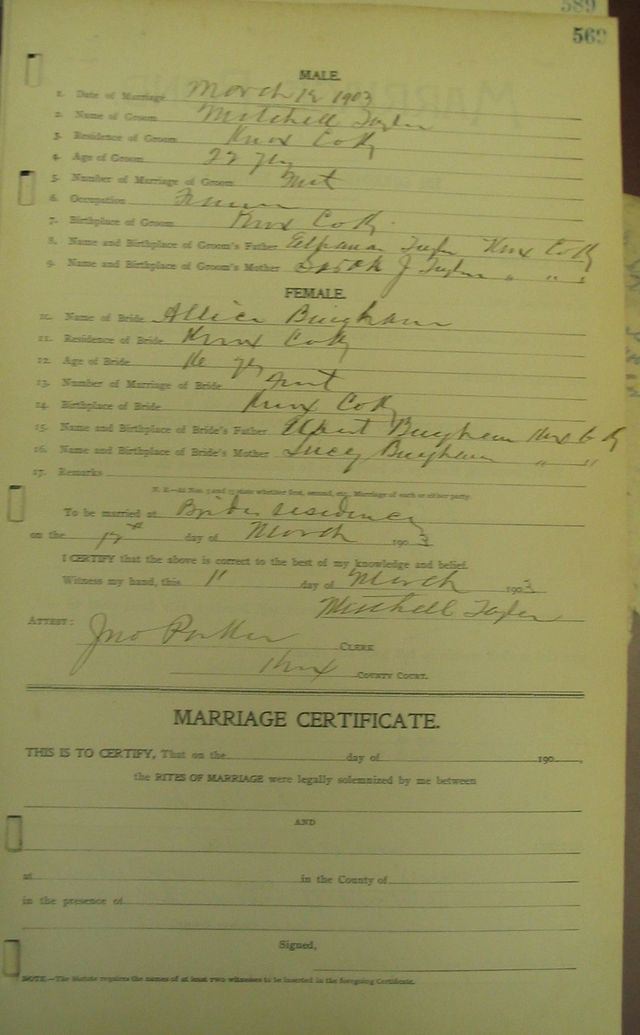 589
569
MALE.
1. Date of Marriage March 12 1903
2. Name of Groom Mitchell Taylor
3. Residence of Groom Knox Co Ky
4. Age of Groom 22 yrs
5. Number of Marriage of Groom
6. Occupation Farmer
7. Birthplace of Groom Knox Co Ky.
8. Name and Birthplace of Groom's Father Taylor Knox Co Ky
9. Name and Birthplace of Groom's Mother J Taylor " " "
FEMALE.
10. Name of Bride Allice Bingham
11. Residence of Bride Knox Co Ky
12. Age of Bride yrs
13. Number of Marriage of Bride First
14. Birthplace of Bride Knox Co Ky
15. Name and Birthplace of Bride's Father Elbert Bingham Knox Co Ky
16. Name and Birthplace of Bride's Mother Lucy Bingham " "
17. Remarks
N. B.—At Nos. 5 and 13 state whether first, second, etc., Marriage of each or either party.
To be married at Brides residence
on the 12th day of March 1903
I CERTIFY that the above is correct to the best of my knowledge and belief.
Witness my hand, this 11 day of March 1903
Mitchell Taylor
ATTEST: Jno Parker CLERK
Knox COUNTY COURT.
MARRIAGE CERTIFICATE.
THIS IS TO CERTIFY, That on the day of 190 .
the RITES OF MARRIAGE were legally solemnized by me between
AND
at in the County of
in the presence of
Signed,
NOTE.—The Statute requires the names of at least two witnesses to be inserted in the foregoing Certificate.